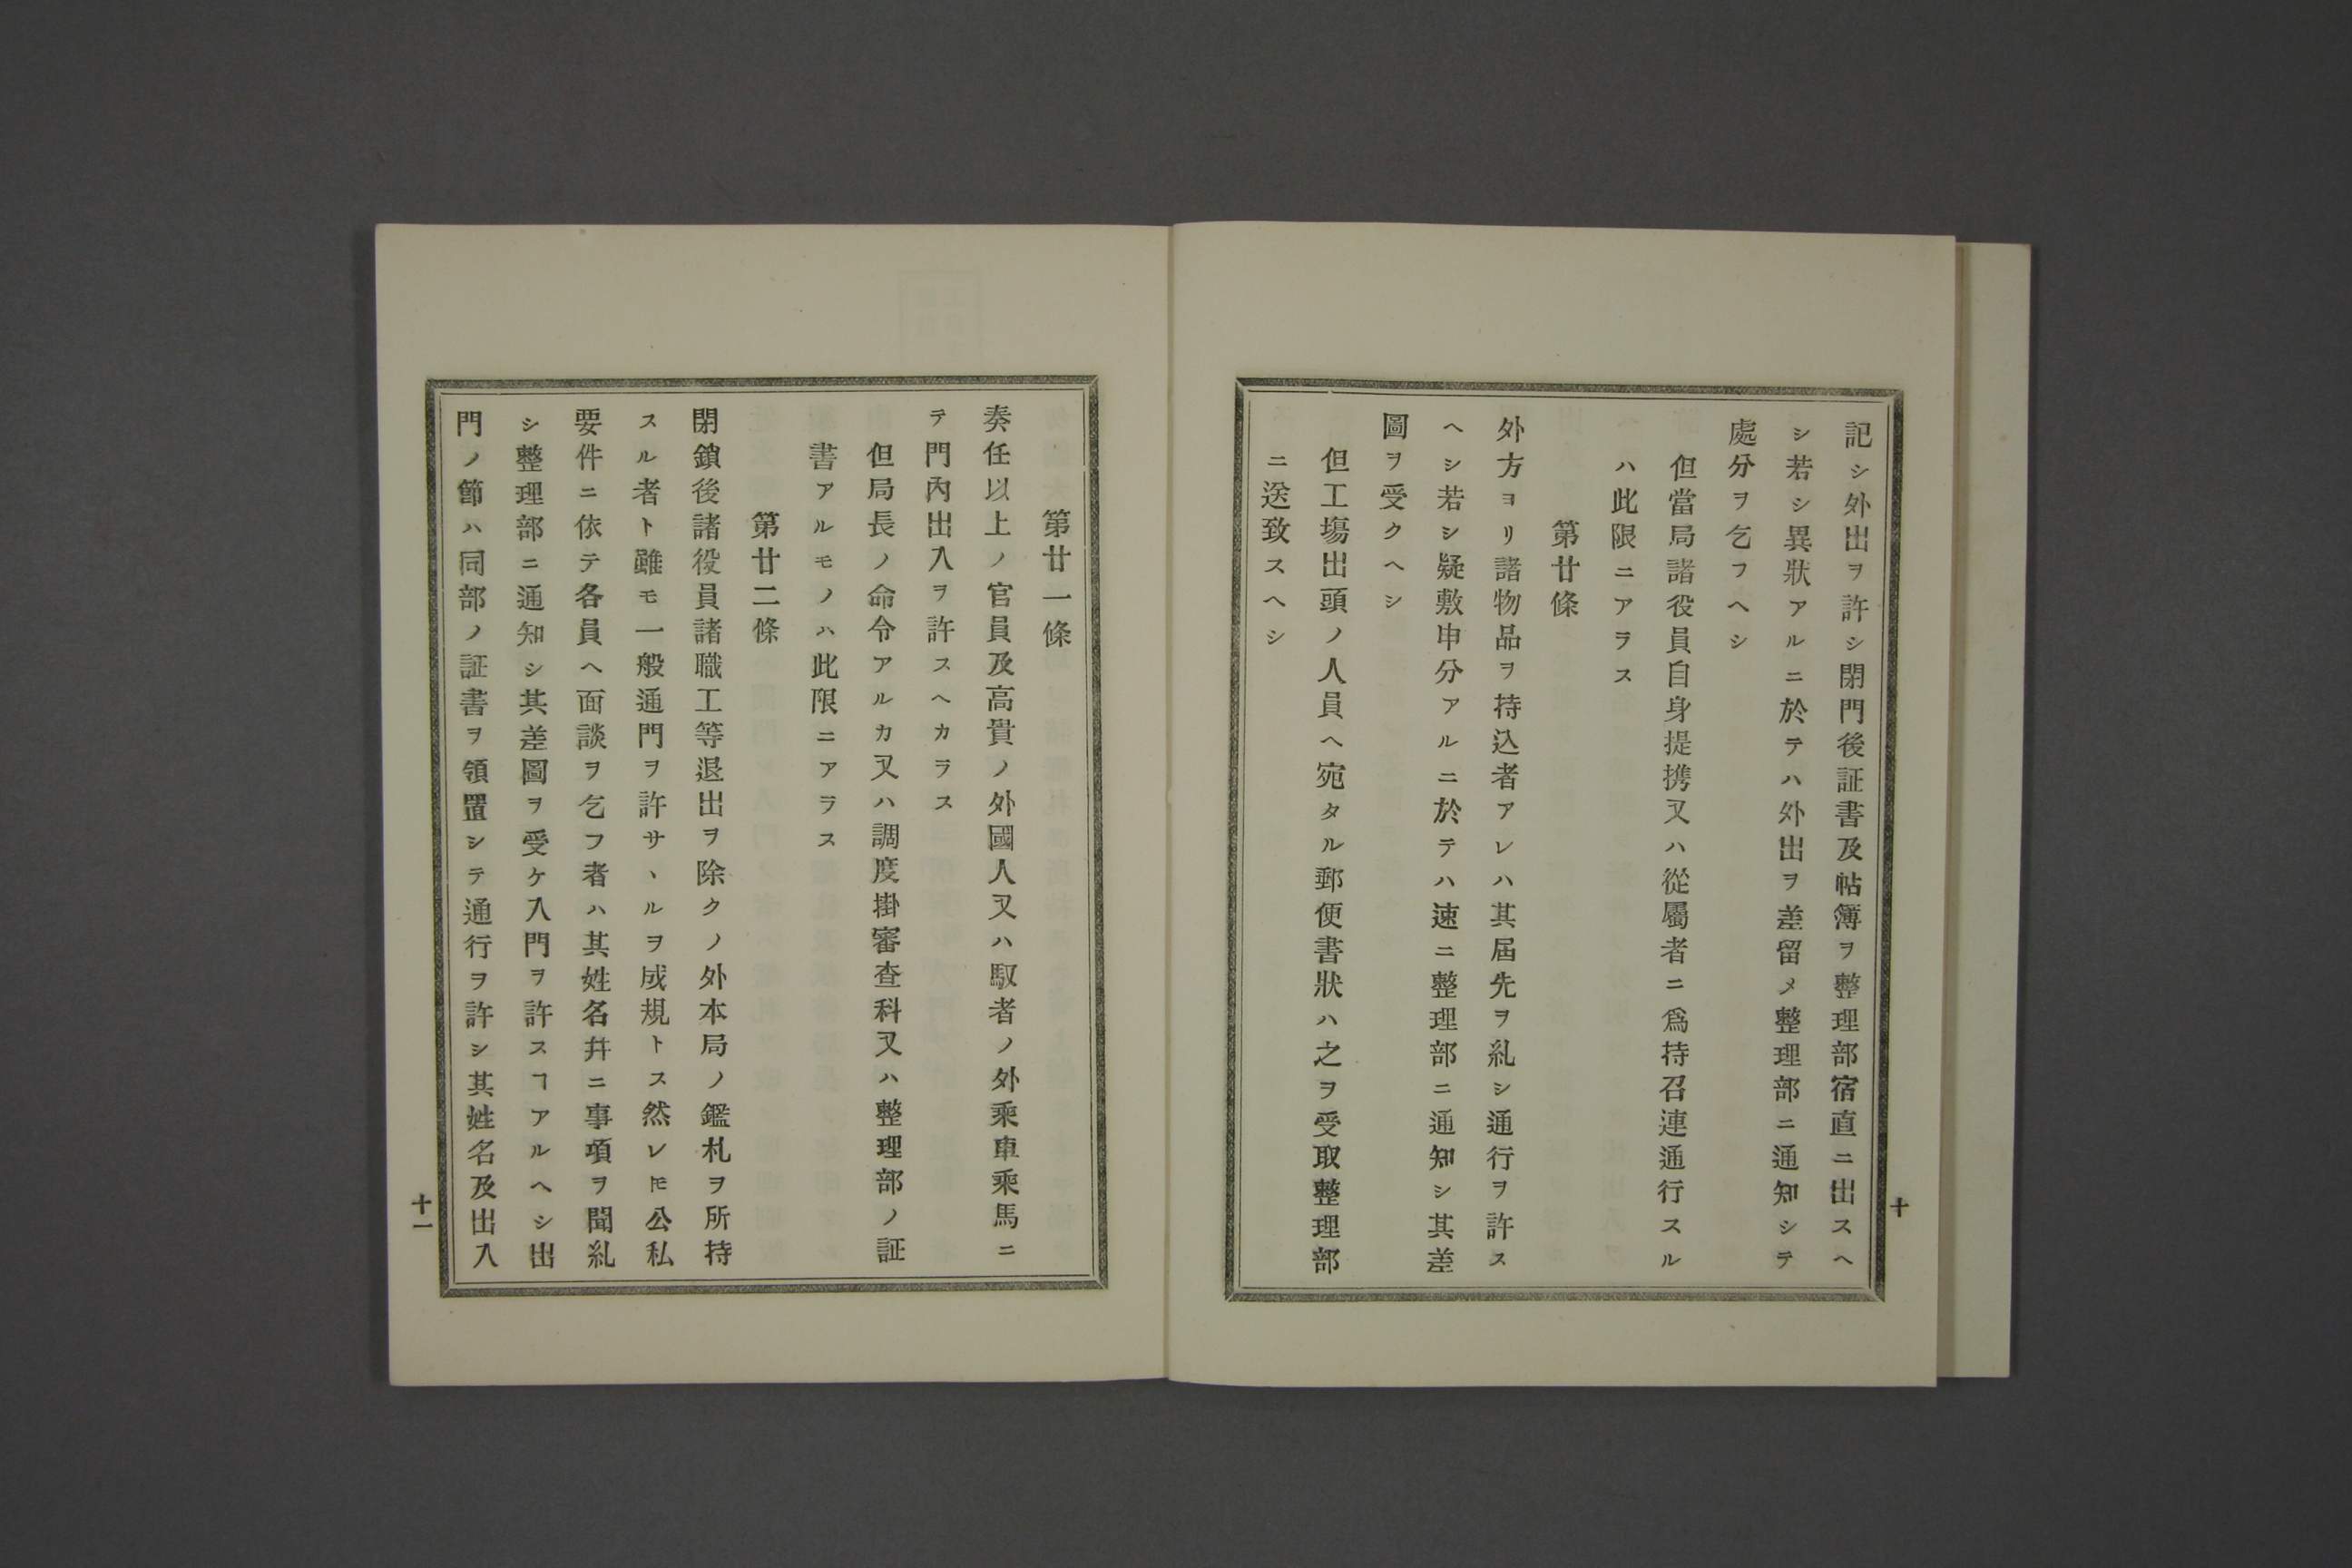 記シ外出ヲ許シ閉門後証書及帖簿ヲ整理部宿直ニ出スヘ
シ若シ異狀アルニ於テハ外出ヲ差留メ整理部ニ通知シテ
處分ヲ乞フヘシ
但當局諸役員自身提携又ハ從屬者ニ爲持召連通行スル
ハ此限ニアラス
第廿條
外方ヨリ諸物品ヲ持込者アレハ其届先ヲ糺シ通行ヲ許ス
ヘシ若シ疑敷申分アルニ於テハ速ニ整理部ニ通知シ其差
圖ヲ受クヘシ
但工塲出頭ノ人員ヘ宛タル郵便書狀ハ之ヲ受取整理部
ニ送致スヘシ
十
第廿一條
奏任以上ノ官員及高貴ノ外國人又ハ馭者ノ外乘車乘馬ニ
テ門內出入ヲ許スヘカラス
但局長ノ命令アルカ又ハ調度掛審查科又ハ整理部ノ証
書アルモノハ此限ニアラス
第廿二條
閉鎖後諸役員諸職工等退出ヲ除クノ外本局ノ鑑札ヲ所持
スル者ト雖モ一般通門ヲ許サヽルヲ成規トス然レ𪜈公私
要件ニ依テ各員ヘ面談ヲ乞フ者ハ其姓名幷ニ事項ヲ聞糺
シ整理部ニ通知シ其差圖ヲ受ケ入門ヲ許スヿアルヘシ出
門ノ節ハ同部ノ証書ヲ領置シテ通行ヲ許シ其姓名及出入
十一